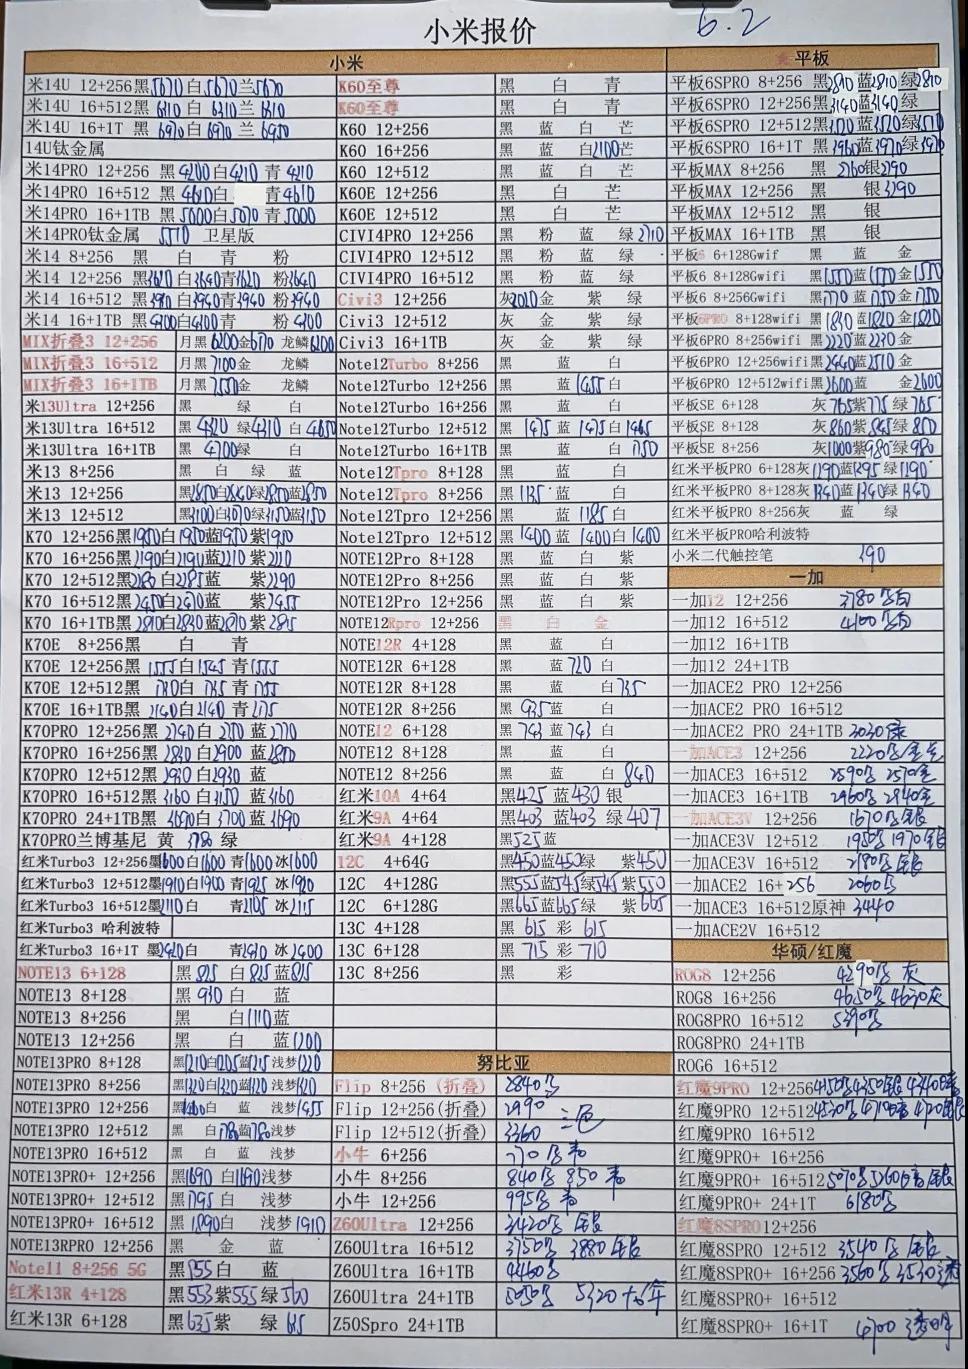 小米报价
6.2
小米
米14U 12+256黑5670白5670兰5670
米14U 16+512黑6310白6310兰6310
米14U 16+1T 黑6970白6970兰6950
14U钛金属
米14PRO 12+256 黑4200白4210青4210
米14PRO 16+512 黑4610白 青4610
米14PRO 16+1TB 黑5000白5070青5000
米14PRO钛金属 5510 卫星版
米14 8+256 黑 白 青 粉
米14 12+256 黑3620白3640青3620粉3640
米14 16+512 黑3910白3940青3940粉3940
米14 16+1TB 黑4300白4300青 粉4300
MIX折叠3 12+256 月黑6200金6170龙鳞6200
MIX折叠3 16+512 月黑7100金 龙鳞
MIX折叠3 16+1TB 月黑7550金 龙鳞
米13Ultra 12+256 黑 绿 白
米13Ultra 16+512 黑4320绿4310白4650
米13Ultra 16+1TB 黑4700绿 白
米13 8+256 黑 白 绿 蓝
米13 12+256 黑2850白2840绿2850蓝2850
米13 12+512 黑3100白3070绿3150蓝3150
K70 12+256黑1950白1950蓝1950紫1950
K70 16+256黑2190白2190蓝2210紫2210
K70 12+512黑2280白2285蓝 紫2290
K70 16+512黑2450白2470蓝 紫2455
K70 16+1TB黑2810白2830蓝2870紫2815
K70E 8+256黑 白 青
K70E 12+256黑1555白1545青1555
K70E 12+512黑1740白1745青1755
K70E 16+1TB黑2140白2140青2175
K70PRO 12+256黑2740白2750蓝2770
K70PRO 16+256黑2830白2900蓝2850
K70PRO 12+512黑2930白2930蓝
K70PRO 16+512黑3160白3150蓝3160
K70PRO 24+1TB黑3690白3700蓝3690
K70PRO兰博基尼 黄 3780 绿
红米Turbo3 12+256墨1600白1600青1600冰1600
红米Turbo3 12+512墨1910白1900青1925冰1920
红米Turbo3 16+512墨2110白 青2105冰2115
红米Turbo3 哈利波特
红米Turbo3 16+1T 墨2420白 青2410冰2400
NOTE13 6+128 黑825白825蓝825
NOTE13 8+128 黑930白 蓝
NOTE13 8+256 黑 白1110蓝
NOTE13 12+256 黑 白 蓝1200
NOTE13PRO 8+128 黑1210白1205蓝1215浅梦1220
NOTE13PRO 8+256 黑1320白1320蓝1320浅梦1320
NOTE13PRO 12+256 黑1460白 蓝 浅梦1455
NOTE13PRO 12+512 黑 白1780蓝1780浅梦
NOTE13PRO 16+512 黑 白 蓝 浅梦
NOTE13PRO+ 12+256 黑1690白1690浅梦
NOTE13PRO+ 12+512 黑1795白 浅梦
NOTE13PRO+ 16+512 黑1890白 浅梦1910
NOTE13RPRO 12+256 黑 金 蓝
Note11 8+256 5G 黑955白 蓝
红米13R 4+128 黑553紫555绿560
红米13R 6+128 黑635紫 绿635
K60至尊 黑 白 青
K60至尊 黑 白 青
K60 12+256 黑 蓝 白 芒
K60 16+256 黑 蓝 白2100芒
K60 12+512 黑 蓝 白 芒
K60E 12+256 黑 白 芒
K60E 12+512 黑 白 芒
CIVI4PRO 12+256 黑 粉 蓝 绿2710
CIVI4PRO 12+512 黑 粉 蓝 绿
CIVI4PRO 16+512 黑 粉 蓝 绿
Civi3 12+256 灰2020金 紫 绿
Civi3 12+512 灰 金 紫 绿
Civi3 16+1TB 灰 金 紫 绿
Note12Turbo 8+256 黑 蓝 白
Note12Turbo 12+256 黑 蓝1455白
Note12Turbo 16+256 黑 蓝 白
Note12Turbo 12+512 黑1475蓝1475白1465
Note12Turbo 16+1TB 黑 蓝 白1750
Note12Tpro 8+128 黑 蓝 白
Note12Tpro 8+256 黑1135蓝 白
Note12Tpro 12+256 黑 蓝1185白
Note12Tpro 12+512 黑1400蓝1400白1400
NOTE12Pro 8+128 黑 蓝 白 紫
NOTE12Pro 8+256 黑 蓝 白 紫
NOTE12Pro 12+256 黑 蓝 白 紫
NOTE12Rpro 12+256 黑 白 金
NOTE12R 4+128 黑 蓝 白
NOTE12R 6+128 黑 蓝720白
NOTE12R 8+128 黑 蓝 白735
NOTE12R 8+256 黑935蓝 白
NOTE12 6+128 黑743蓝743白
NOTE12 8+128 黑 蓝 白
NOTE12 8+256 黑 蓝 白840
红米10A 4+64 黑425蓝430银
红米9A 4+64 黑403蓝403绿407
红米9A 4+128 黑525蓝
12C 4+64G 黑450蓝450绿 紫450
12C 4+128G 黑555蓝545绿545紫550
12C 6+128G 黑665蓝665绿 紫665
13C 4+128 黑615彩615
13C 6+128 黑715彩710
13C 8+256 黑 彩
努比亚
Flip 8+256 (折叠) 2840
Flip 12+256(折叠) 2990 三色
Flip 12+512(折叠) 3360
小牛 6+256 770
小牛 8+256 840 850
小牛 12+256 995
Z60Ultra 12+256 3420 银
Z60Ultra 16+512 3750 3880 银
Z60Ultra 16+1TB 4460
Z60Ultra 24+1TB 5050 5320
Z50Spro 24+1TB
平板
平板6SPRO 8+256 黑2810蓝2810绿2810
平板6SPRO 12+256黑3140蓝3140绿
平板6SPRO 12+512黑3520蓝3520绿3510
平板6SPRO 16+1T 黑3960蓝3970绿3970
平板MAX 8+256 黑2760银2790
平板MAX 12+256 黑 银3290
平板MAX 12+512 黑 银
平板MAX 16+1TB 黑 银
平板6 6+128Gwif 黑 蓝 金
平板6 8+128Gwifi 黑1550蓝1570金1555
平板6 8+256Gwifi 黑1770蓝1750金1750
平板6PRO 8+128wifi 黑1830蓝1820金1820
平板6PRO 8+256wifi 黑2220蓝2230金
平板6PRO 12+256wifi黑2440蓝2510金
平板6PRO 12+512wifi黑2600蓝 金2600
平板SE 6+128 灰765紫775绿765
平板SE 8+128 灰860紫845绿850
平板SE 8+256 灰1000紫980绿980
红米平板PRO 6+128灰1190蓝1195绿1190
红米平板PRO 8+128灰1340蓝1340绿1340
红米平板PRO 8+256灰 蓝 绿
红米平板PRO哈利波特
小米二代触控笔 390
一加
一加12 12+256 3780 白
一加12 16+512 4100 白
一加12 16+1TB
一加12 24+1TB
一加ACE2 PRO 12+256
一加ACE2 PRO 16+512
一加ACE2 PRO 24+1TB 3030绿
一加ACE3 12+256 2220
一加ACE3 16+512 2590 2570金
一加ACE3 16+1TB 2960 2940金
一加ACE3V 12+256 1670 银
一加ACE3V 12+512 1950 1970银
一加ACE3V 16+512 2180 银
一加ACE2 16+256 2060
一加ACE3 16+512原神 3440
一加ACE2V 16+512
华硕/红魔
ROG8 12+256 4290 灰
ROG8 16+256 4650 4630灰
ROG8PRO 16+512 5390
ROG8PRO 24+1TB
ROG6 16+512
红魔9PRO 12+256 4150 4350银
红魔9PRO 12+512
红魔9PRO 16+512
红魔9PRO+ 16+256
红魔9PRO+ 16+512 5070
红魔9PRO+ 24+1T 6180
红魔8SPRO12+256
红魔8SPRO 12+512 3540 银
红魔8SPRO+ 16+256 3560 3530透
红魔8SPRO+ 16+512
红魔8SPRO+ 16+1T 4700 透明